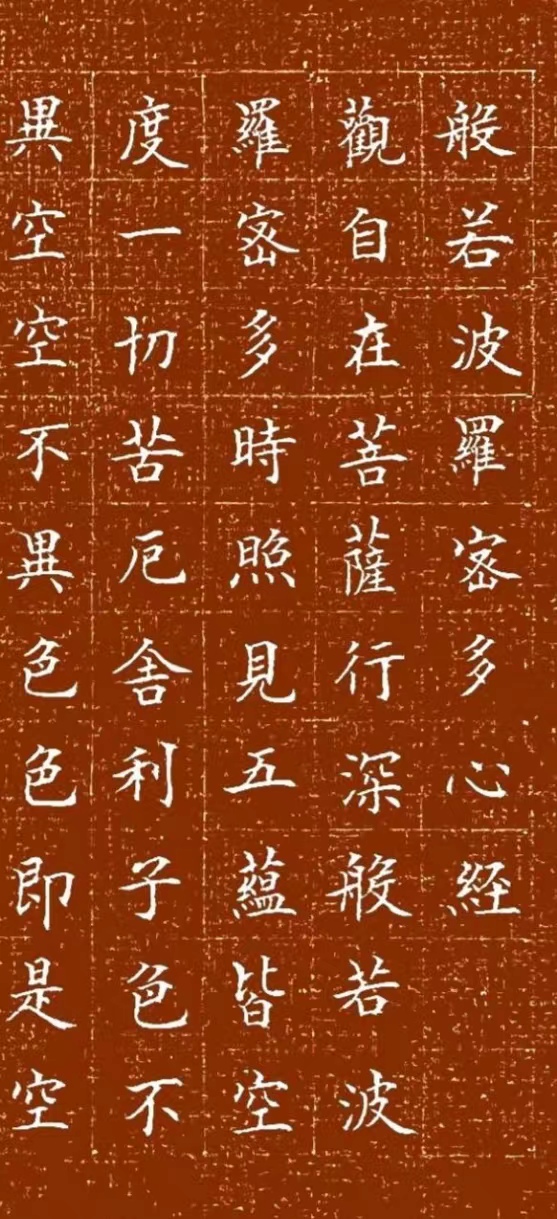 般若波羅密多心経
觀自在菩薩行深般若波
羅密多時照見五蘊皆空
度一切苦厄舍利子色不
異空空不異色色即是空